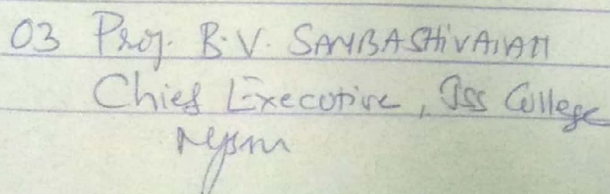 03 Prof. B.V. SAMBASHIVAIAH
Chief Executive, JSS College
Mysore